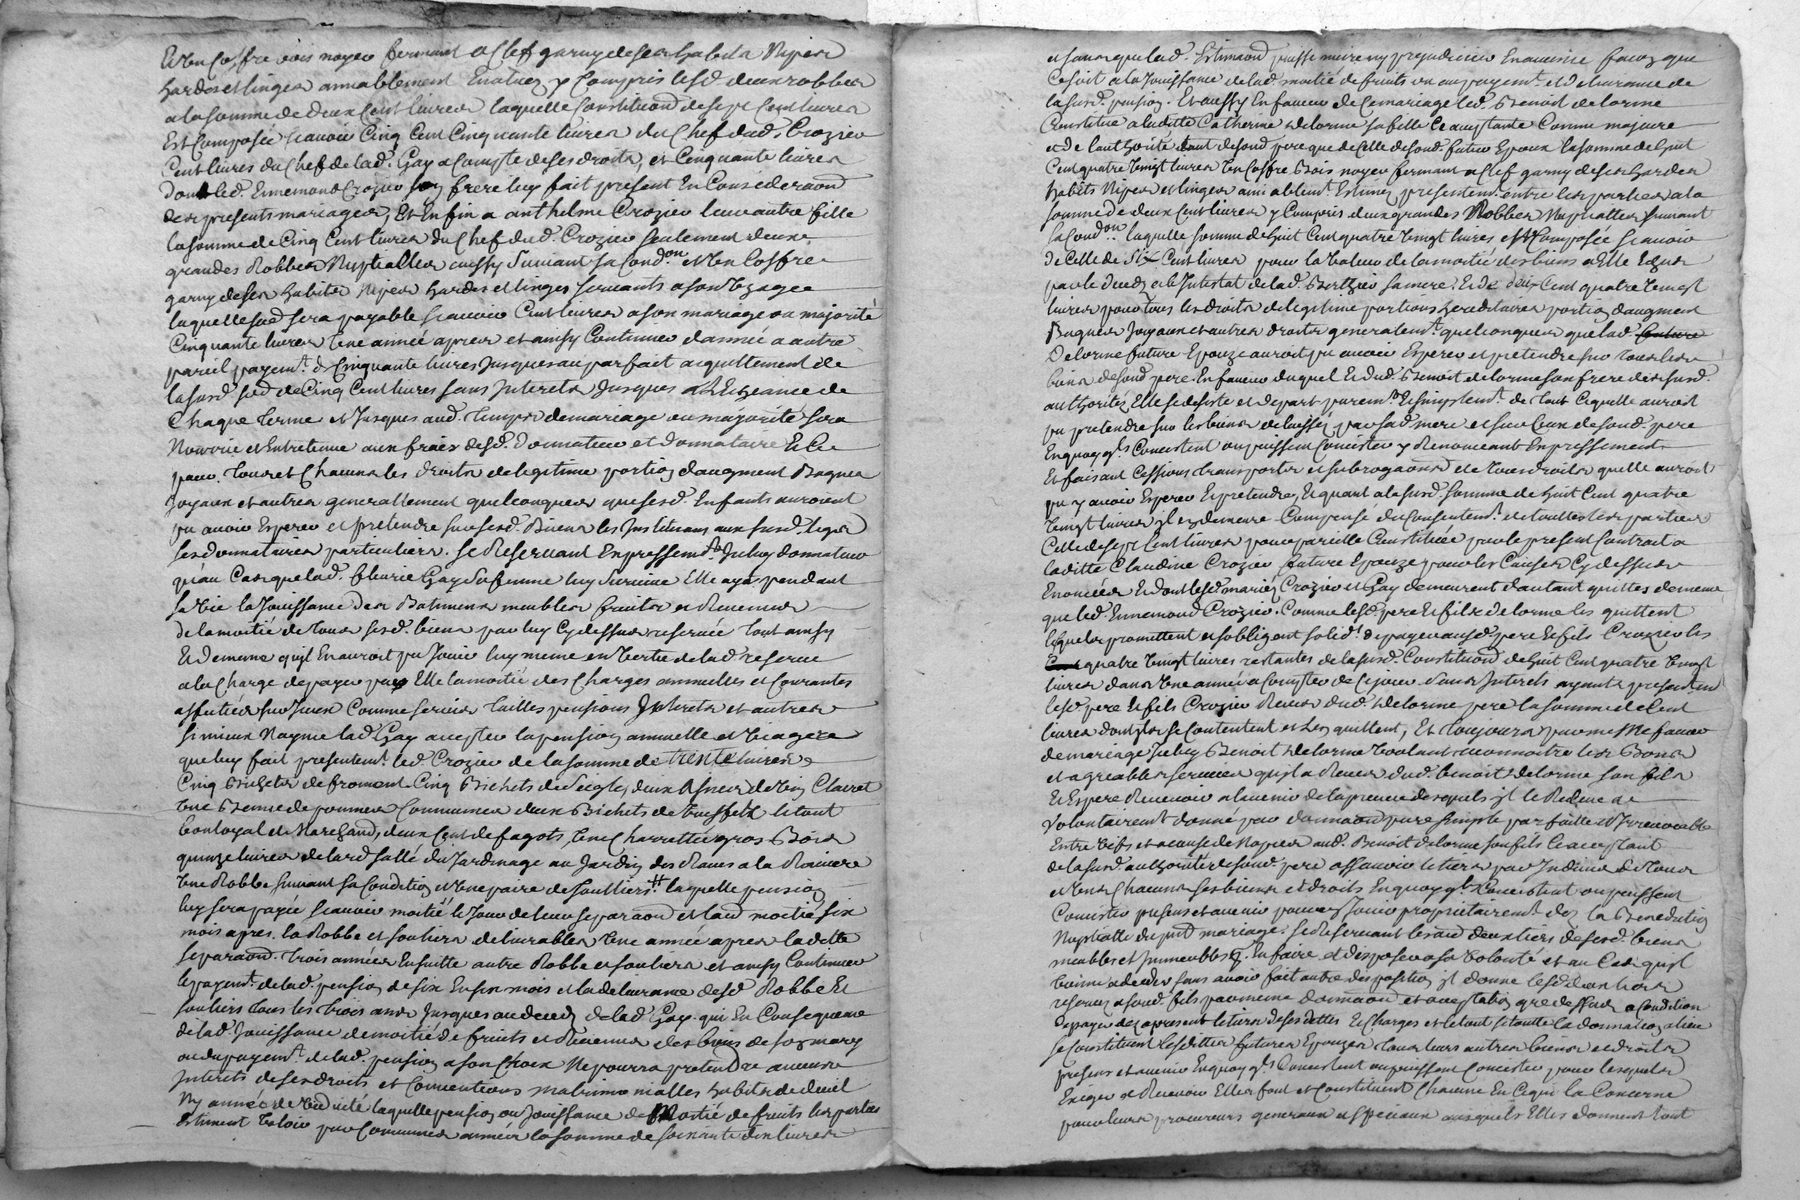 et un coffre bois noyer fermant a clef garny de ses habits nipes
hardes et linges amiablement evaluez y compris lesd. deux robbes
a la somme de deux cent livres laquelle constitution de sept cent livres
est composée scavoir cinq cent cinquante livres du chef dud. Crozier
cent livres du chef de lad. Gay a compte de ses droits, et cinquante livres
dont led. Ennemond Crozier son frere luy fait present en consideraõn
des presents mariages, Et enfin a anthelme Crozier leur autre fille
la somme de cinq cent livres du chef dud. Crozier seulement deux
grandes robbes nuptialles aussy suivant sa condõn et un coffre
garny de ses habits nipes hardes et linges servants a son usage
laquelle sera payable scavoir cent livres a son mariage ou majorité
cinquante livres une année apres et ainsy continuer d'année a autre
pareil payemt. de cinquante livres jusques au parfait acquittement de
la susd. de cinq cent livres sans interets jusques a l'echeance de
chaque terme et jusques aud. temps de mariage ou majorité sera
nourrie et entretenue aux fraix desd. donnateur et donnataire et ce
pour tous et chacuns les droits de legitime portion d'augment bagues
joyaux et autres generallement quelconques que sesd. enfants auroient
pu avoir esperer et pretendre sur sesd. biens les instituant aux susd. legs
ses donnataires particuliers. se reservant expressemt. led. Juluy donnateur
qu'au cas que lad. fleurie Gay sa femme luy survive elle aye pendant
sa vie la jouissance des batimens meubles fruits et revenus
de la moitié de tous sesd. biens par luy cy dessus reservée tout ainsy
et de meme qu'il en auroit pu jouir luy meme en vertu de lad. reserve
a la charge de payer par elle la moitié des charges annuelles et courantes
affectées sur iceux comme servis tailles pensions interets et autres
si mieux n'ayme lad. Gay accepter la pension annuelle et viagere
que luy fait presentemt. led. Crozier de la somme de trente livres
cinq bichets de froment cinq bichets de seigle, deux asnées de vin clairet
une benne de pommes communes deux bichets de truffes le tout
bon loyal et marchand, deux cent de fagots, une charrettée gros bois
quinze livres de lard sallé du jardinage au jardin des raves a la raviere
une robbe suivant sa condition et une paire de soulliers # laquelle pension
luy sera payée scavoir moitié le jour de leur separaõn et l'autre moitié six
mois apres, la robbe et souliers delivrables une année apres ladite
separaõn, trois années ensuitte autre robbe et souliers et ainsy continuer
le payemt. de lad. pension de six en six mois et la delivrance desd. robbe et
souliers tous les trois ans jusques au deceds de lad. Gay qui en consequence
de lad. jouissance de moitié de fruits et revenus des biens de son mary
ou du payemt. de lad. pension a son choix ne pourra pretendre aucuns
interets de ses droits et conventions matrimonialles habits de deuil
ny année de viduité laquelle pension ou jouissance de moitié de fruits les parties
estiment valoir par communes années la somme de soixante dix livres
et sans que lad. estimaõn puisse nuire ny prejudicier en aucune facon que
ce soit a la jouissance de lad. moitié de fruits ou au payemt. et delivrance de
la susd. pension. Et aussy en faveur de ce mariage led. Benoit delorme
constitue a ladite Catherine delorme sa fille ce acceptante comme majeure
et de l'authorité tant desond. pere que de celle desond. futur epoux la somme de huit
cent quatre vingt livres un coffre bois noyer fermant a clef garny de ses hardes
habits nipes et linges amiablemt. estimez presentemt. entre les parties a la
somme de deux cent livres y compris deux grandes robbes nuptialles suivant
sa condõn, laquelle somme de huit cent quatre vingt livres est composée scavoir
de celle de six cent livres pour la valeur de la moitié des biens a elle echus
par le deceds ab intestat de lad. Berthier sa mere, et de deux cent quatre vingt
livres pour tous les droits de legitime portions hereditaires portion d'augment
bagues joyaux et autres droits generalemt. quelconques que lad. Catherine
Delorme future epouze auroit pu avoir esperer et pretendre sur tous les
biens desond. pere. en faveur duquel et dud. Benoit delorme son frere desd. susd.
authoritez elle se desiste et depart purement et simplemt. de tout ce quelle auroit
pu pretendre sur les biens delaissés par sad. mere et sur ceux de sond. pere
en quoy qls. consistent ou puissent consister y renoncant expressement
et faisant cessions transports et subrogaõns de tous droits quelle auroit
pu y avoir esperer et pretendre, et quant a la susd. somme de huit cent quatre
vingt livres il en demeure compensé du consentemt. de touttes les parties
celle de sept cent livres pour pareille constituée par le present contract a
laditte Claudine Crozier future epouze pour les causes cy dessus
enoncées et dont lesd. mariez Crozier et Gay demeurent d'autant quittes de meme
que led. Ennemond Crozier. Comme lesd. pere et fils delorme les quittent
lesquels promettent et s'obligent solidt. de payer ausd. pere et fils Crozier les
quatre vingt livres restantes de la susd. constitution de huit cent quatre vingt
livres dans une année a compter de ce jour sans interets ayants presentemt.
lesd. pere et fils Crozier receu dud. delorme pere la somme de cent
livres dont ils se contentent et l'en quittent, Et toujours pour meme faveur
de mariage Juluy Benoit delorme voulant reconnoitre les bons
et agreables services qu'il a receus dud. benoit delorme son fils
et espere recevoir a l'avenir de la preuve desquels il le releve a
volontairemt. donné par donnaõn pure simple parfaitte et irrevocable
entre vifs et a cause de nopces aud. Benoit delorme son fils ce acceptant
de la susd. authorité desond. pere assavoir le tiers par indivis de tous
et uns chacuns ses biens et droits en quoy qls. consistent ou puissent
consister presens et avenir pour en jouir proprietairemt. dez la Benediction
nuptialle du pnt. mariage. se reservant les autres deux tiers de sesd. biens
meubles et immeubles pr. en faire et disposer a sa volonté et au cas quil
vienne a deceder sans avoir fait autre disposition il donne lesd. deux tiers
reservez a sond. fils par meme donnaõn et acceptation que dessus a condition
de payer dez a present le tiers de ses dettes et charges et le tout si toutte la donnation a lieu
se constituent lesdittes futures epouzes tous leurs autres biens et droits
presens et avenir en quoy qls. consistent ou puissent consister pour lesquels
exiger et recevoir elles font et constituent chacune en ce qui la concerne
pour leurs procureurs generaux et speciaux ausquels elles donnent tout